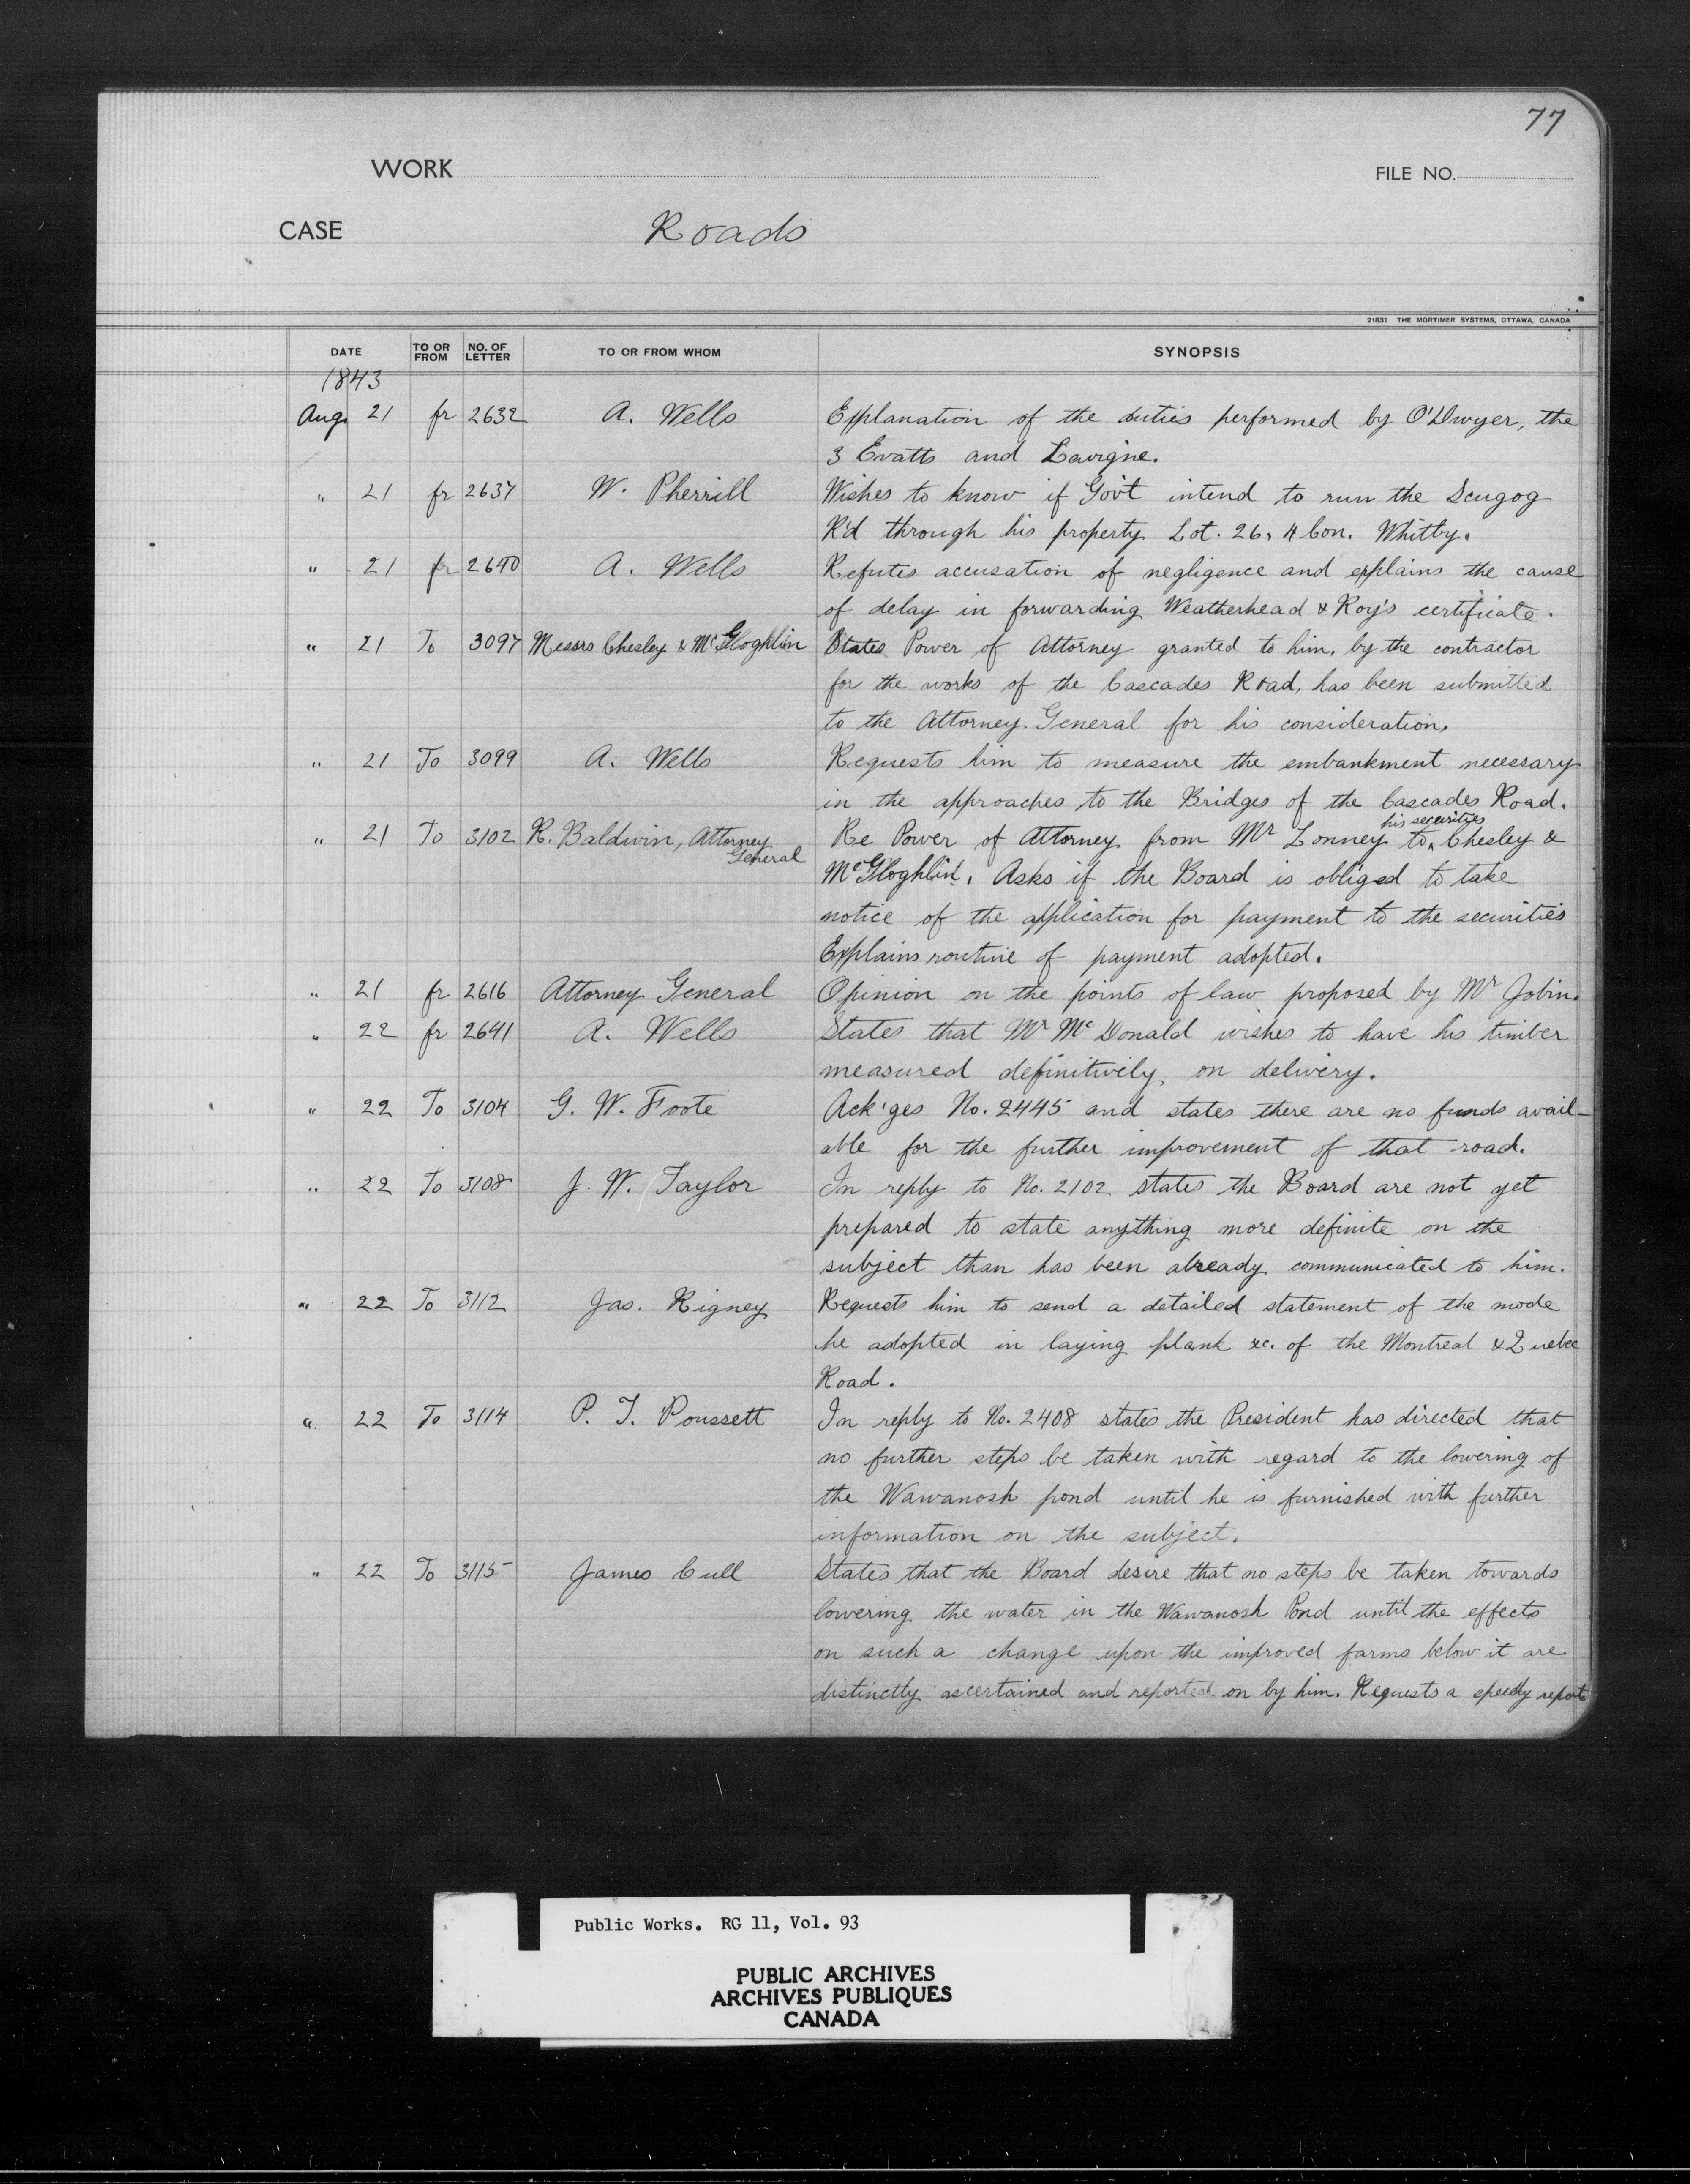 77
WORK
FILE NO.
CASE Roads
21831 THE MORTIMER SYSTEMS, OTTAWA, CANADA
DATE TO OR FROM NO. OF LETTER TO OR FROM WHOM SYNOPSIS
1843
Aug. 21 fr 2632 A. Wells Explanation of the duties performed by O'Dwyer, the
3 Evatts and Lavigne.
" 21 fr 2637 W. Pherrill Wishes to know if Gov't intend to run the Scugog
R'd through his property Lot. 26, 4 Con. Whitby.
" 21 fr 2640 A. Wells Refutes accusation of negligence and explains the cause
of delay in forwarding Weatherhead & Roy's certificate.
" 21 To 3097 Messrs Chesley & McGloghlin States Power of Attorney granted to him, by the contractor
for the works of the Cascades Road, has been submitted
to the Attorney General for his consideration.
" 21 To 3099 A. Wells Requests him to measure the embankment necessary
in the approaches to the Bridges of the Cascades Road.
" 21 To 3102 R. Baldwin, Attorney General Re Power of Attorney from Mr Lonney to his securities Chesley &
McGloghlin. Asks if the Board is obliged to take
notice of the application for payment to the securities
Explains routine of payment adopted.
" 21 fr 2616 Attorney General Opinion on the points of law proposed by Mr Jobin.
" 22 fr 2641 A. Wells States that Mr McDonald wishes to have his timber
measured definitively, on delivery.
" 22 To 3104 G. W. Foote Ack'ges No. 2445 and states there are no funds avail-
able for the further improvement of that road.
" 22 To 3108 J. W. Taylor In reply to No. 2102 states the Board are not yet
prepared to state anything more definite on the
subject than has been already communicated to him.
" 22 To 3112 Jas. Rigney Requests him to send a detailed statement of the mode
he adopted in laying plank &c. of the Montreal & Quebec
Road.
" 22 To 3114 P. T. Poussett In reply to No. 2408 states the President has directed that
no further steps be taken with regard to the lowering of
the Wawanosh pond until he is furnished with further
information on the subject.
" 22 To 3115 James Cull States that the Board desire that no steps be taken towards
lowering the water in the Wawanosh Pond until the effects
on such a change upon the improved farms below it are
distinctly ascertained and reported on by him. Requests a speedy report
Public Works. RG 11, Vol. 93
PUBLIC ARCHIVES
ARCHIVES PUBLIQUES
CANADA